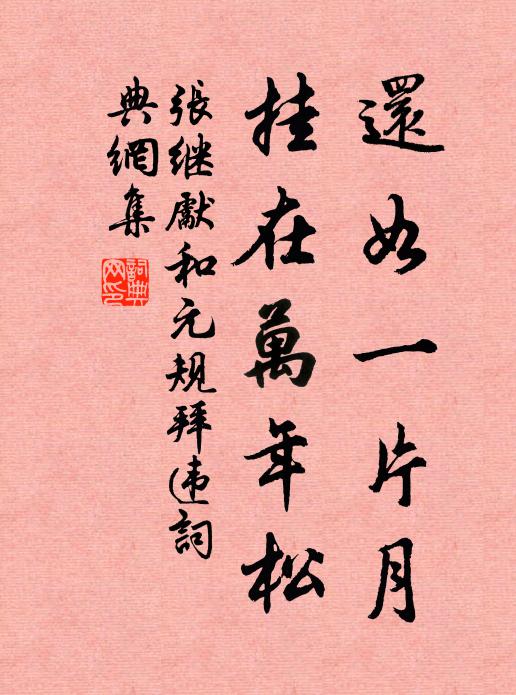 還如一片月
挂在萬年松
張继獻和元規拜违詞
典網集
詞典
网印